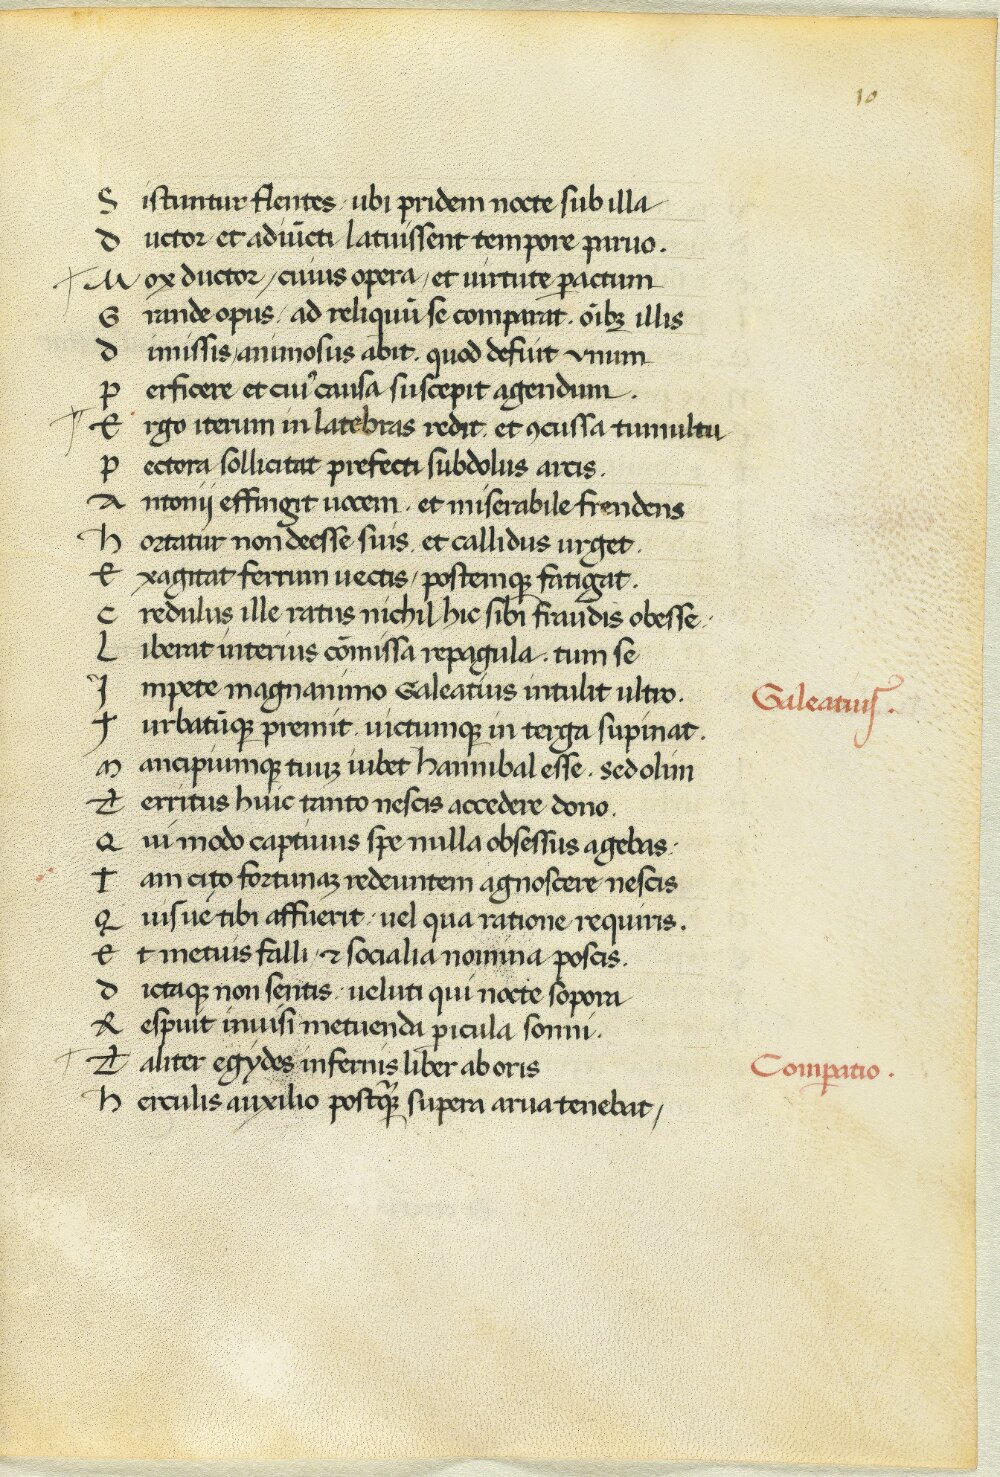 10
Sistuntur flentes · ubi pridem nocte sub illa
ductor et adiūcti latuissent tempore paruo .
Mox ductor / cuius opera / et uirtute ꝑactum
Grande opus / ad reliquū se comparat . oībꝫ illis
dimissis / animosus abit . quod defuit vnum
perficere et cuiꝰ causa suscepit agendum .
Ergo iterum in latebras redit . et ꝯcussa tumultu
pectora sollicitat prefecti subdolus arcis .
Antonij effingit uocem . et miserabile frendens
hortatur non deesse suis . et callidus urget .
Exagitat ferrum uectis / postemqꝫ fatigat .
credulus ille ratus nichil hic sibi fraudis obesse .
Liberat interius cōmissa repagula . tum se
Impete magnanimo Galeatius intulit ultro .
Galeatius .
Turbatūqꝫ premit . uictumqꝫ in terga supinat .
mancipiumqꝫ tuuꝫ iubet hannibal esse . sed olim
Territus huic tanto nescis accedere dono .
Qui modo captiuus spe nulla obsessus agebas .
Tam cito fortunaꝫ redeuntem agnoscere nescis
Quisue tibi affuerit · uel qua ratione requiris .
et metuis falli / ⁊ socialia nomina poscis .
dictaqꝫ non sentis · ueluti qui nocte sopora
Respuit inuisi metuenda ꝑicula somni .
Taliter egydes infernis liber ab oris
Comꝑatio .
herculis auxilio postqᷓꝫ supera arua tenebat /